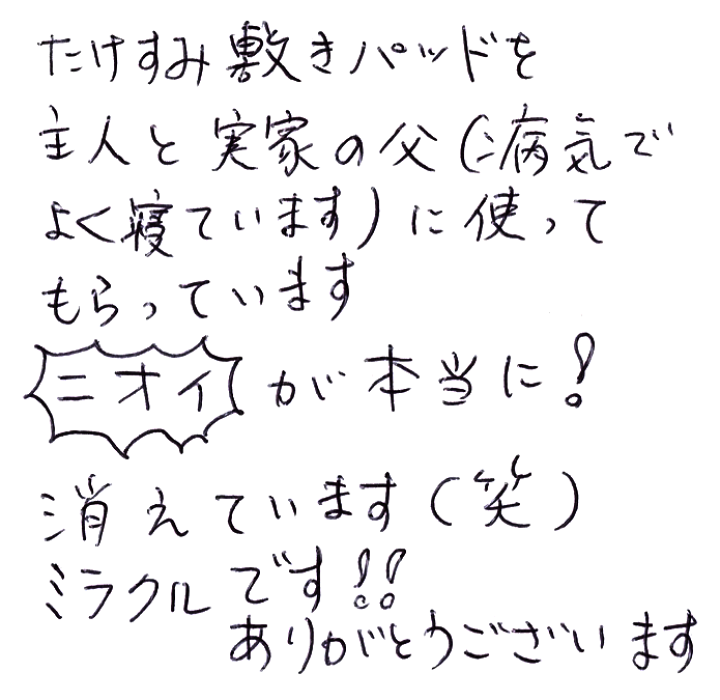 たけすみ敷きパッドを
主人と実家の父(病気で
よく寝ています)に使って
もらっています
ニオイが本当に!
消えています(笑)
ミラクルです!!
ありがとうございます